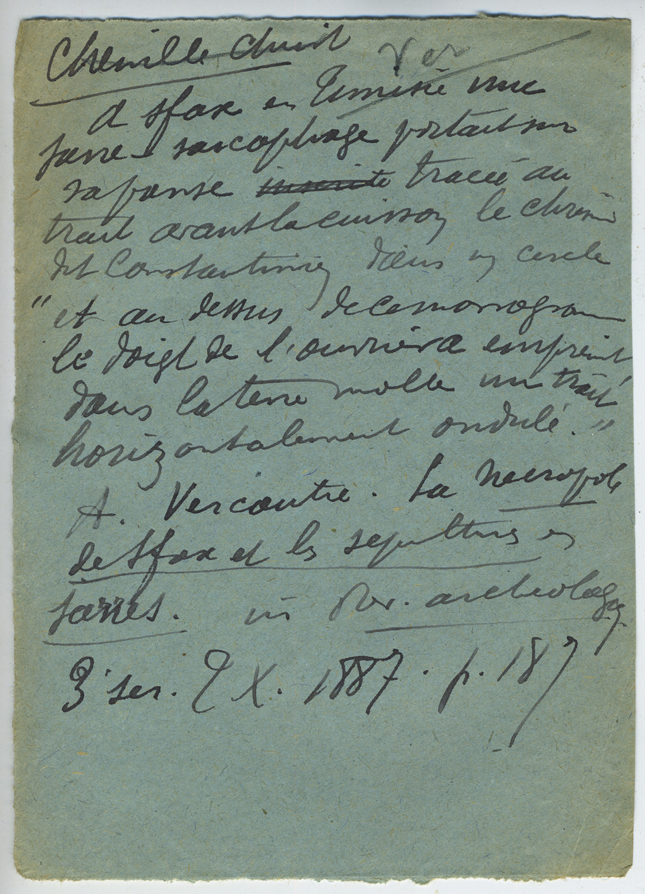 Chenille Christ Ver
A Sfax en Tunisie une
jarre-sarcophage portait sur
sa panse inscrite tracée au
trait avant la cuisson le chrisme
dit Constantinien dans un cercle
"et au dessus de ce monogramme
le doigt de l'ouvrier a empreint
dans la terre molle un trait
horizontalement ondulé."
A. Vercoutre. La nécropole
de Sfax et les sépultures en
jarres. in Rev. archéologique
3e ser. T X. 1887. p. 187